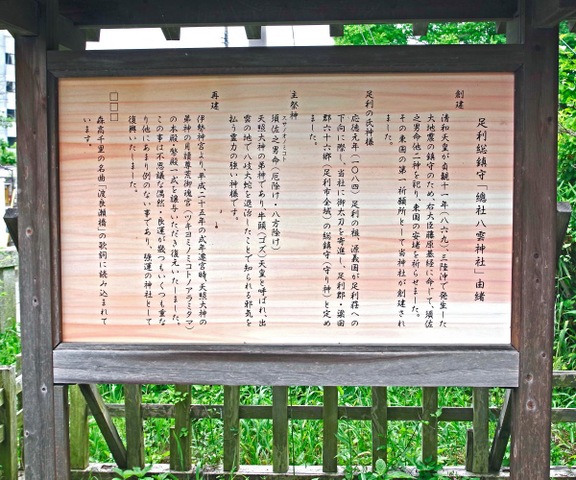 足利総鎮守「總社八雲神社」由緒
創建
清和天皇が貞観十一年(八六九)、三陸沖で発生した
大地震の鎮守のため、右大臣藤原基経に命じて、須佐
之男命他二神を祀り、東国の安堵を祈らせました。
その東国の第一祈願所として当神社が創建され
ました。
足利の氏神様
応徳元年(一〇八四)足利の祖、源義國が足利荘への
下向に際し、当社に御太刀を寄進し、足利郡・梁田
郡六十六郷(足利市全域)の総鎮守(守り神)と定め
ました。
主祭神
スサノオノミコト
須佐之男命(厄除け・八方除け)
天照大神の弟神であり、牛頭(ゴズ)天皇と呼ばれ、出
雲の地で八岐大蛇を退治したことで知られる邪気を
払う霊力の強い神様です。
再建
伊勢神宮より、平成二十五年の式年遷宮時、天照大神の
弟神の月讀尊荒御魂宮(ツキヨミノミコトノアラミタマ)
の本殿・祭殿一式を譲与いただき復元いたしました。
この事は不思議な偶然・良運が幾つもいくつも重な
り他にあまり例のない事であり、強運の神社として
復興いたしました。
□□□
森高千里の名曲「渡良瀬橋」の歌詞に読み込まれて
います。